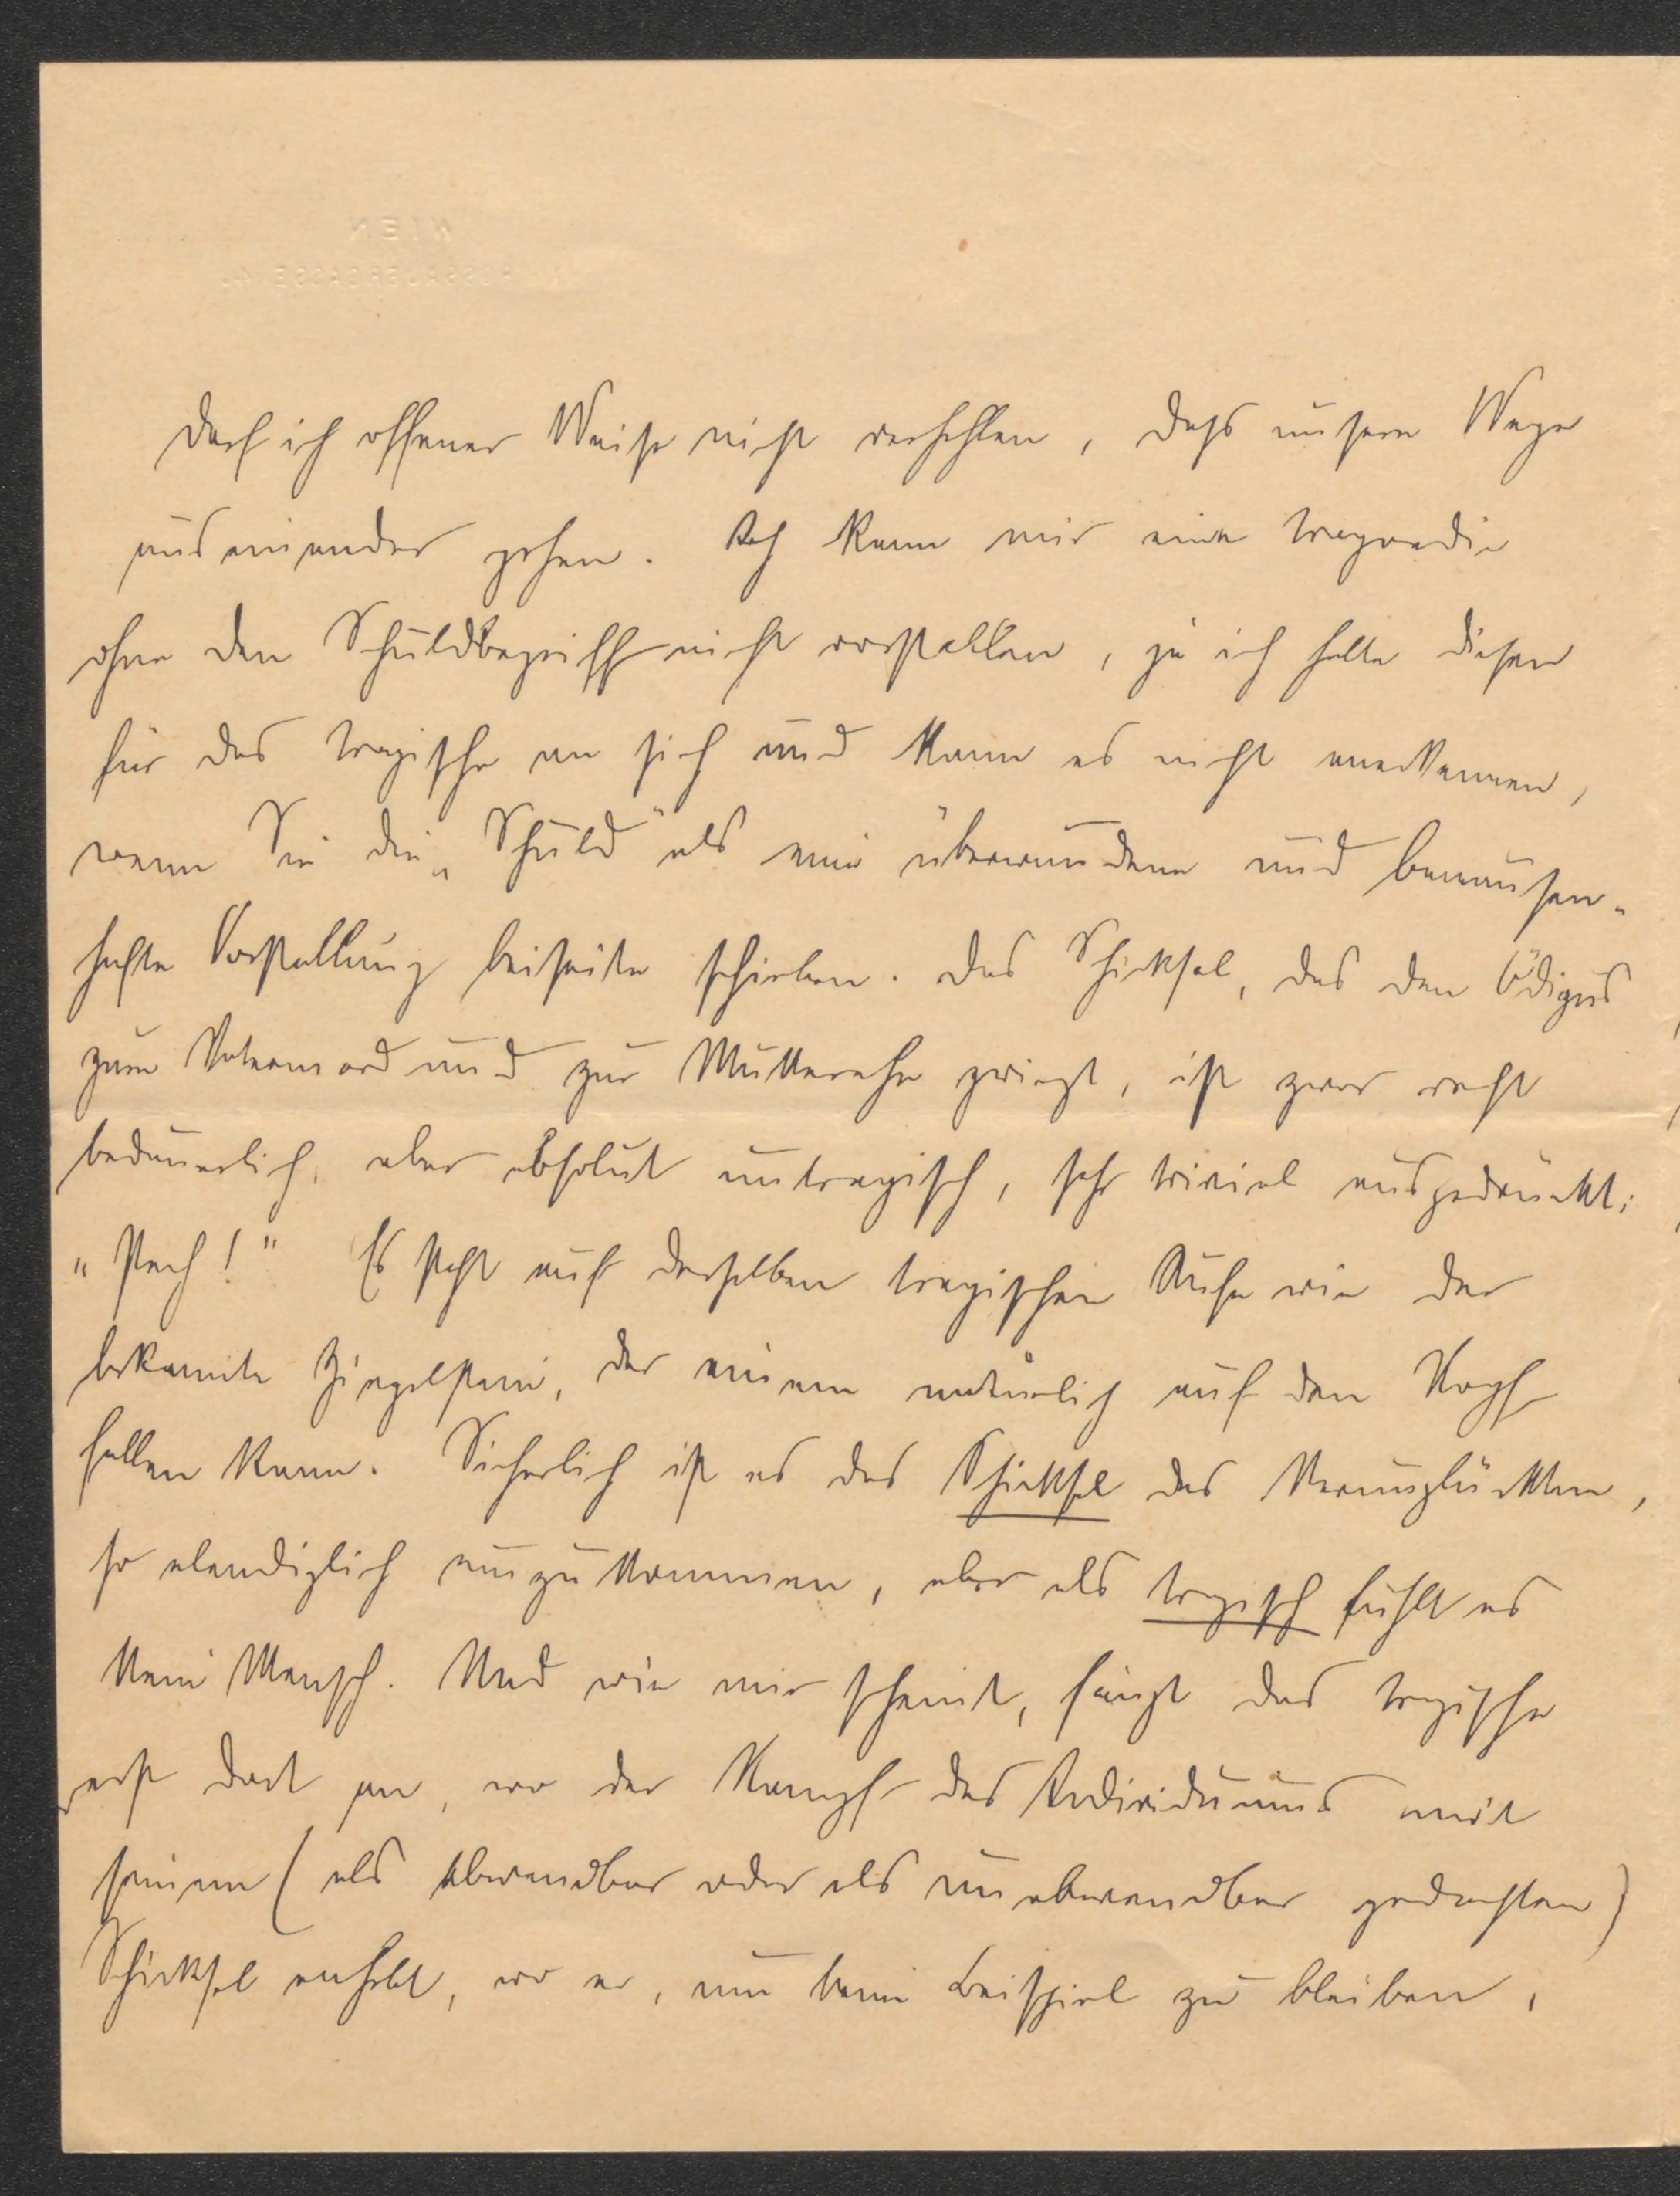 darf ich offener Weise nicht verhehlen, dass unsere Wege
auseinander gehen. Ich kann mir eine Tragoedie
ohne den Schuldbegriff nicht vorstellen, ja ich halte diesen
für das Tragische an sich und kann es nicht anerkennen,
wenn Sie die „Schuld" als eine überwundene und banausen-
hafte Vorstellung beiseite schieben. Das Schicksal, das den Ödipus
zum Vatermord und zur Mutterehe zwingt, ist zwar recht
bedauerlich, aber absolut untragisch, sehr trivial ausgedrückt:
„Pech!" Es steht auf derselben tragischen Stufe wie der
bekannte Ziegelstein, der einem natürlich auf den Kopf
fallen kann. Sicherlich ist es das Schicksal des Verunglückten,
so elendiglich umzukommen, aber als tragisch fühlt es
kein Mensch. Und wie mir scheint, fängt das Tragische
erst dort an, wo der Kampf des Individuums mit
seinem (als abwendbar oder als unabwendbar gedachten)
Schicksal anhebt, wo er, um beim Beispiel zu bleiben,